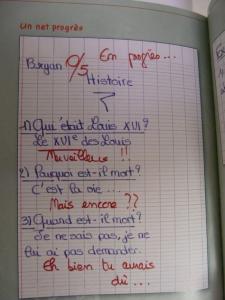 Un net progrès
En progrès...
Bryan 0/5
Histoire
1) Qui était Louis XVI?
Le XVIe des Louis
Merveilleux !!
2) Pourquoi est-il mort?
C'est la vie ...
Mais encore ??
3) Quand est-il mort?
Je ne sais pas, je ne
lui ai pas demander.
Eh bien tu aurais
dû ...